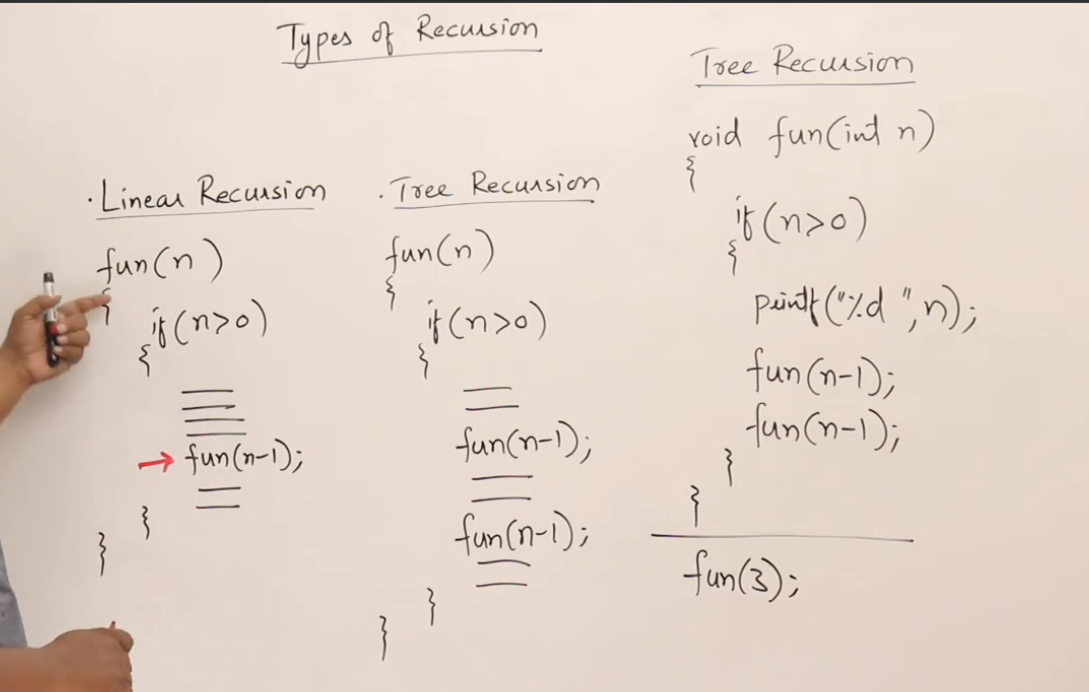 Types of Recursion
. Linear Recursion
fun(n)
{
if(n>0)
{
→ fun(n-1);
}
}
. Tree Recursion
fun(n)
{
if(n>0)
{
fun(n-1);
fun(n-1);
}
}
Tree Recursion
void fun(int n)
{
if(n>0)
{
printf("%d ",n);
fun(n-1);
fun(n-1);
}
}
fun(3);